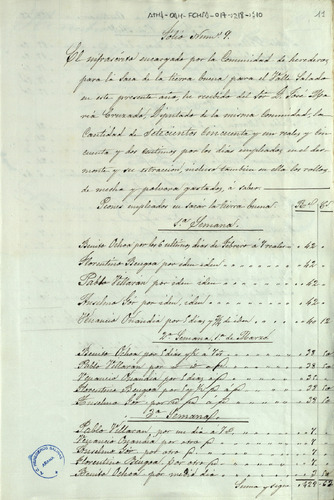 ATHA-DAH-FCHM-014-1218-1310
12
Folio Num.º 9.
El infrascrito encargado por la Comunidad de herederos
para la saca de la tierra buena para el Valle Salado
en este presente año, he recibido del Sor D. José Ma
ria Cruzado, Diputado de la misma Comunidad, la
Cantidad de setecientos cincuenta y un reales y cin
cuenta y dos centimos por los dias empleados en el des
monte y su estracion, incluso tambien en ella los rollos
de mecha y polvora gastados, á saber
Peones empleados en sacar la tierra buena Rs Cs
1.ª Semana.
Benito Ochoa por los 6 ultimos dias de Febrero á 7 reales 42
Florentino Bengoa por iden iden 42
Pablo Villaran por iden iden 42
Anselmo Sor por iden iden 42
Venancio Ozandia por 5 dias y ¾ de iden 40 12
2.ª Semana, 1.ª de Marzo
Benito Ochoa por 5 dias 38 50
Pablo Villaran por 38 50
Venancio Ozandia por 5 dias 38 50
Florentino Bengoa por 38 50
Anselmo Sor por 38 50
3.ª Semana
Pablo Villaran, por un dia á 7
Venancio Ozandia por otro
Anselmo Sor por otro
Florentino Bengoa, por otro
Benito Ochoa, por medio dia
Suma y sigue